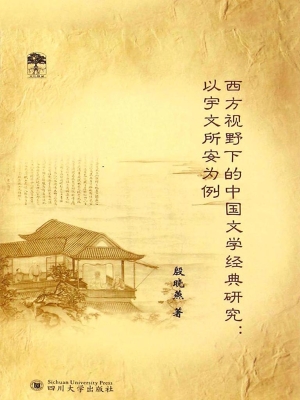 西方视野下的中国文学经典研究：
以宇文所安为例
殷晓燕 著
Sichuan University Press
四川大学出版社